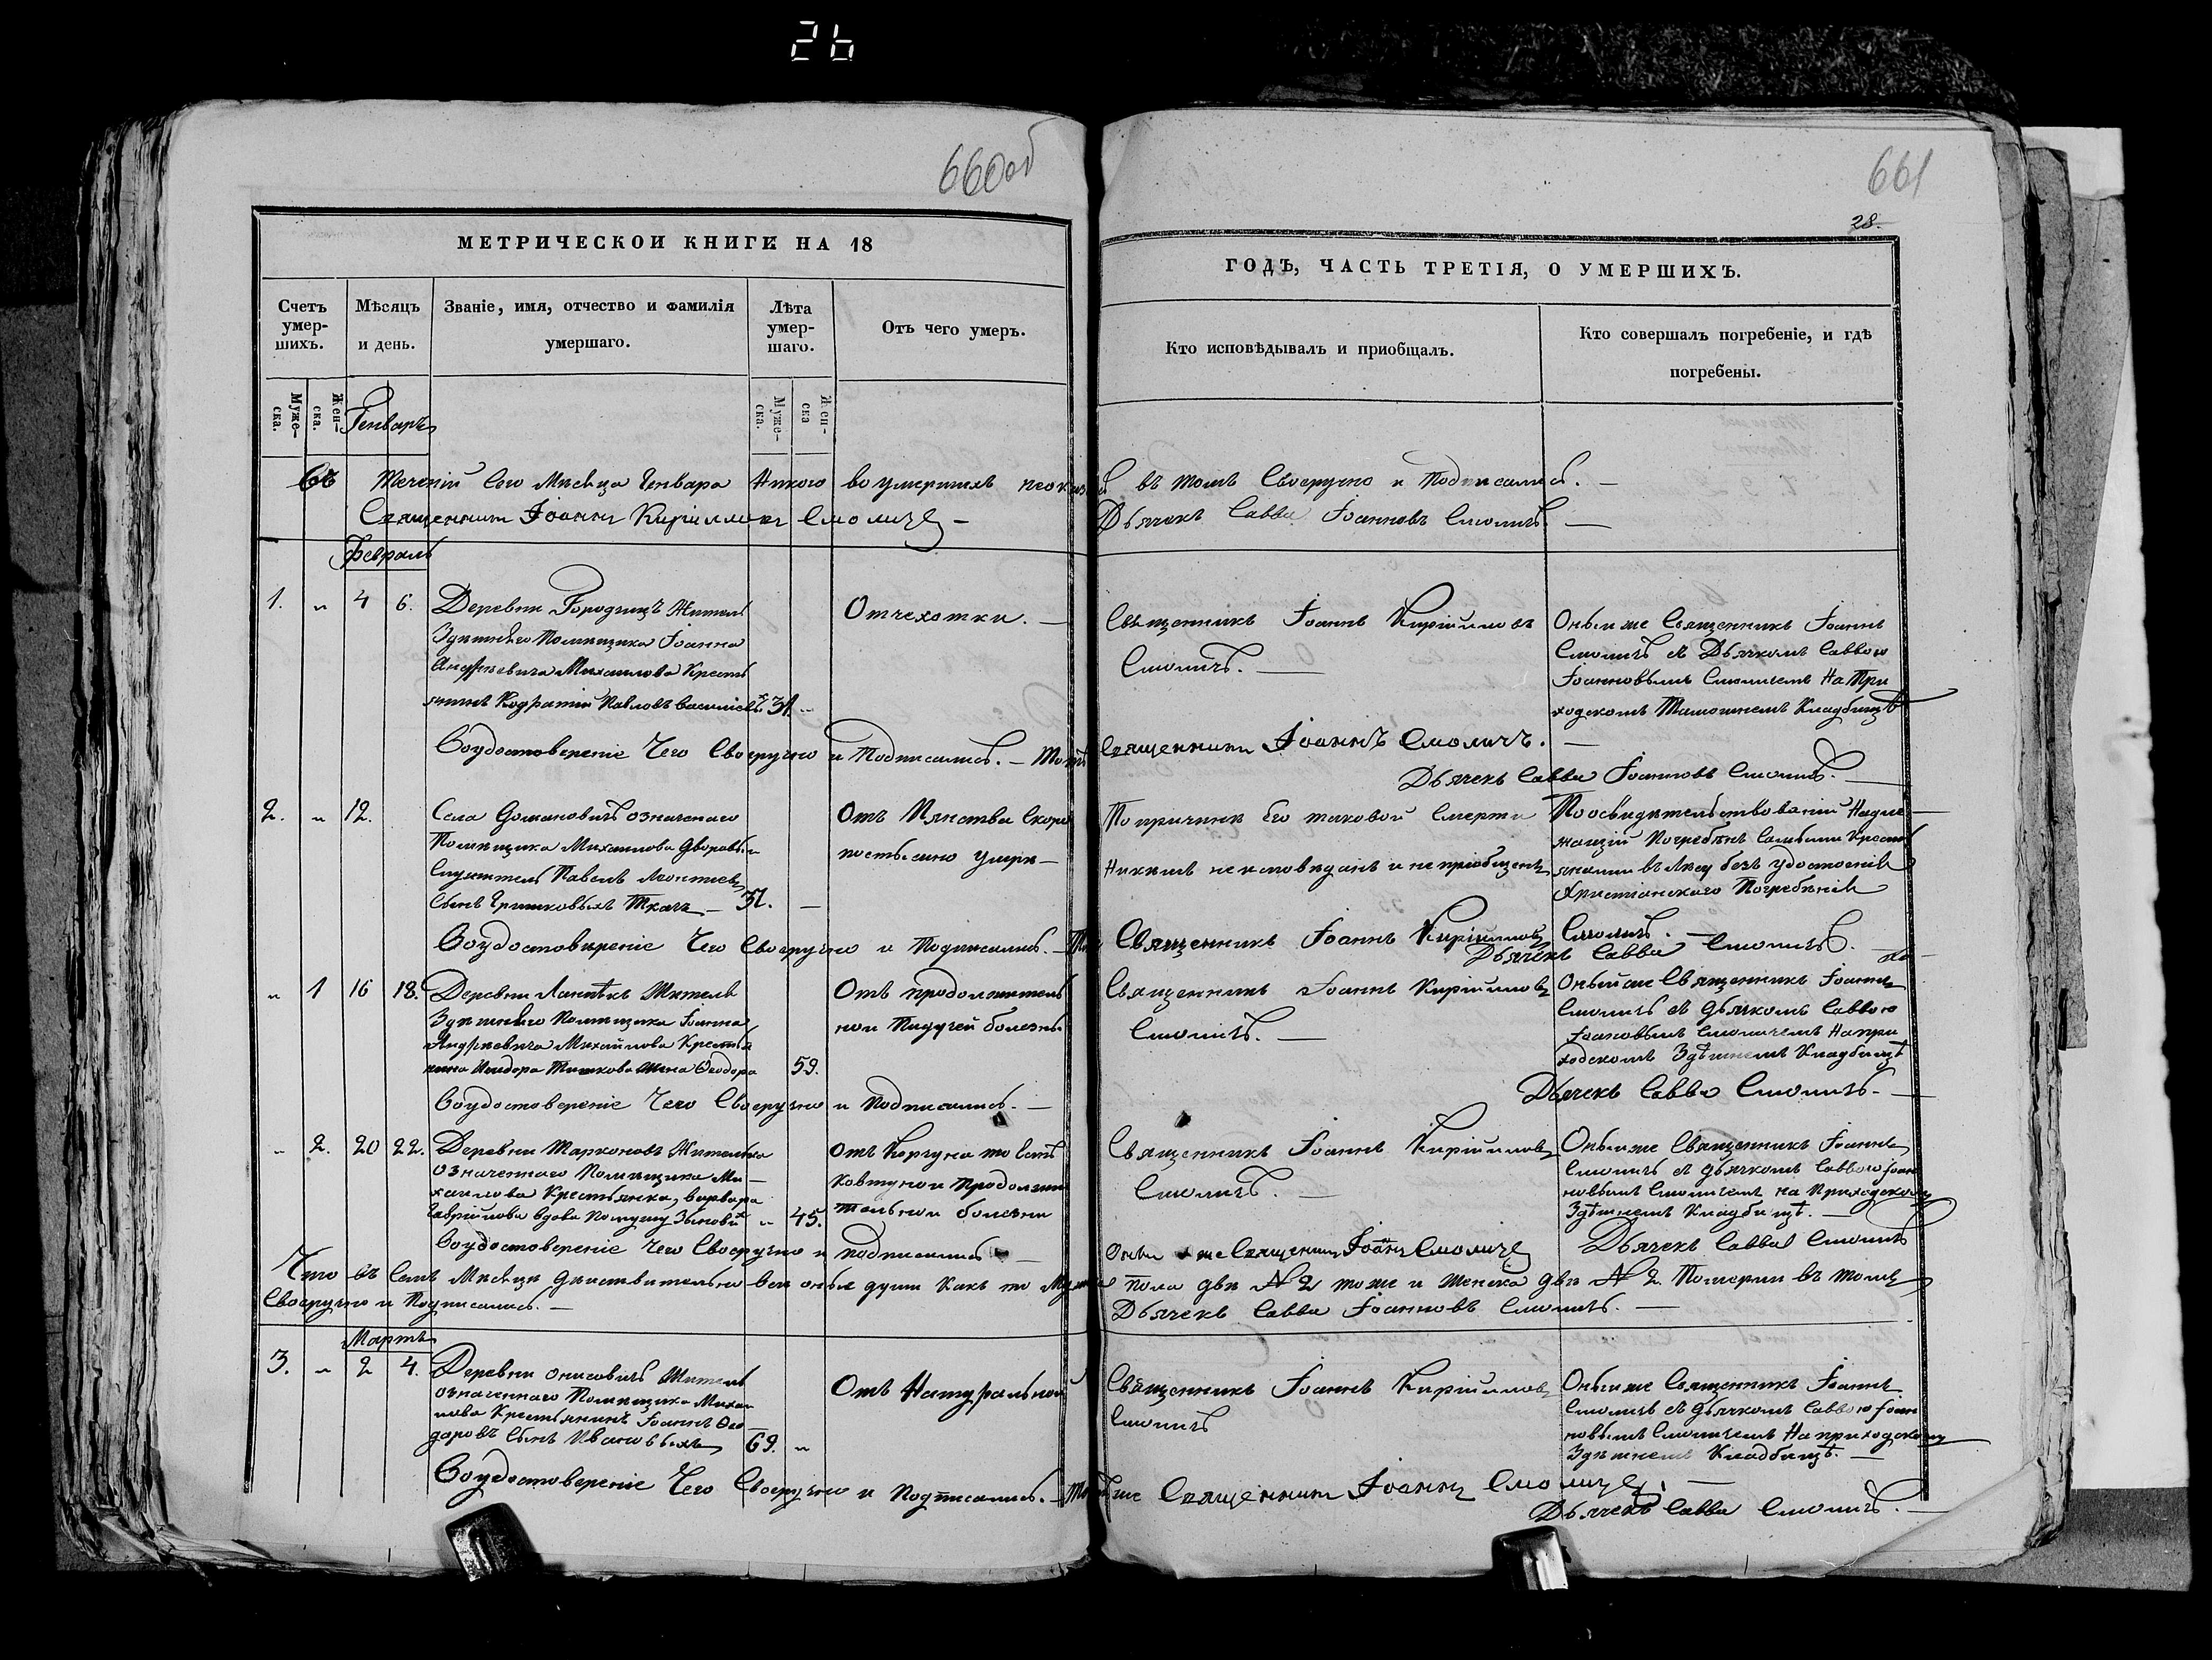 26
660об
661
28.
МЕТРИЧЕСКОЙ КНИГИ НА 18
ГОДЪ, ЧАСТЬ ТРЕТІЯ, О УМЕРШИХЪ.
Счетъ умер-шихъ.
Мѣсяцъ и день.
Званіе, имя, отчество и фамилія умершаго.
Лѣта умер-шаго.
Отъ чего умеръ.
Кто исповѣдывалъ и пріобщалъ.
Кто совершалъ погребеніе, и гдѣ погребены.
Муже-ска.
Жен-ска.
Муже-ска.
Жен-ска
Генварь
Въ теченіи сего месяца Генваря никого во умершихъ въ томъ своеручно и подписались. —
Священникъ Іоаннъ Кирилловъ Смоличъ —
Дьячекъ Савва Іоанновъ Смоличъ. —
Февраль
1. " 4 6.
Деревни Городищъ житель
здѣшнего Помѣщика Іоанна
Андреевича Михаилова Кресть
янинъ Кодратій Павловъ
31. "
Отчехотки. —
Священникъ Іоаннъ Кирилловъ
Смоличъ. —
Оный же Священникъ Іоаннъ
Смоличъ съ Дьячкомъ Саввою
Іоанновымъ Смоличемъ На При
ходскомъ Тамошнемъ Кладбищѣ
Воудостовереніе Чего Своеручно и Подписались. —
Священникъ Іоаннъ Смоличъ. —
Дьячекъ Савва Іоанновъ Смоличъ. —
2. " 12.
Села Домановичъ означенаго
Помѣщика Михаилова дворовый
Служитель Павелъ Леонтиевъ
Сынъ Ткачъ —
Отъ Пянства Скоро
постыжно умре —
По причинѣ Его таковой Смерти
Никимъ неисповѣданъ и не пріобщенъ
По освидѣтельствованіи Надле
жащій Погребѣнъ Самыми Кресть
янами въ лесу безъ удостоенія
Христіанскаго Погребѣнія
Воудостовѣреніе Чего Своеручно и Подписались. —
Священникъ Іоаннъ Кирилловъ Смоличъ. —
Дьячекъ Савва Смоличъ. —
" 1 16 18.
Деревни житель
здѣшнего Помѣщика Іоанна
Андреевича Михайлова Крестья
нина Исидора Тишкова жена Ѳеодора
59.
Отъ продолжитель
ной Падучей болезни
Священникъ Іоаннъ Кирилловъ
Смоличъ. —
Оный же Священникъ Іоаннъ
Смоличъ съ дьячкомъ Саввою
Іоановымъ Смоличемъ На при
ходскомъ Здѣшнемъ Кладбищѣ
Воудостовереніе Чего Своеручно и Подписались. —
Дьячекъ Савва Смоличъ. —
" 2. 20 22.
Деревни
означеннаго Помѣщика Ми-
хаилова Крестьянка, Варвара
Гавриилова вдова По мужу
" 45.
продолжи
тельной болезни
Священникъ Іоаннъ Кирилловъ
Смоличъ. —
Оный же Священникъ Іоаннъ
Смоличъ съ дьячкомъ Саввою Іоан
новымъ Смоличемъ на Приходскомъ
Здѣшнемъ Кладбищѣ. —
Воудостовереніе Чего Своеручно и подписались —
Оный же Священникъ Іоаннъ Смоличъ
Дьячекъ Савва Смоличъ
Что въ Семъ Мѣсяцѣ дѣиствительно Вси оные души Какъ то
Пола двѣ № 2 тоже и женска двѣ № 2. Померли въ томъ
Своеручно и Подписались. —
Дьячекъ Савва Іоанновъ Смоличъ. —
Мартъ
3. " 2 4.
Деревни Житель
означеннаго Помѣщика Михаи
лова Крестьянинъ Іоаннъ Ѳео
доровъ Сынъ
69. "
Отъ Натуральной
Священникъ Іоаннъ Кирилловъ
Смоличъ
Оный же Священникъ Іоаннъ
Смоличъ съ дьячкомъ Саввою Іоан
новымъ Смоличемъ На приходскому
Здѣшнемъ Кладбищѣ. —
Воудостовереніе Чего Своеручно и Подписались. —
Священникъ Іоаннъ Смоличъ. —
Дьячекъ Савва Смоличъ. —